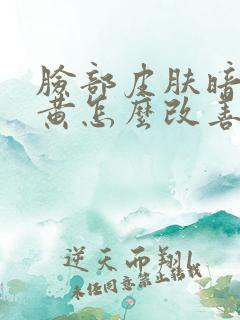 臉部皮肤暗
黄怎麽改善
逆天而翔l
未经同意禁止转载